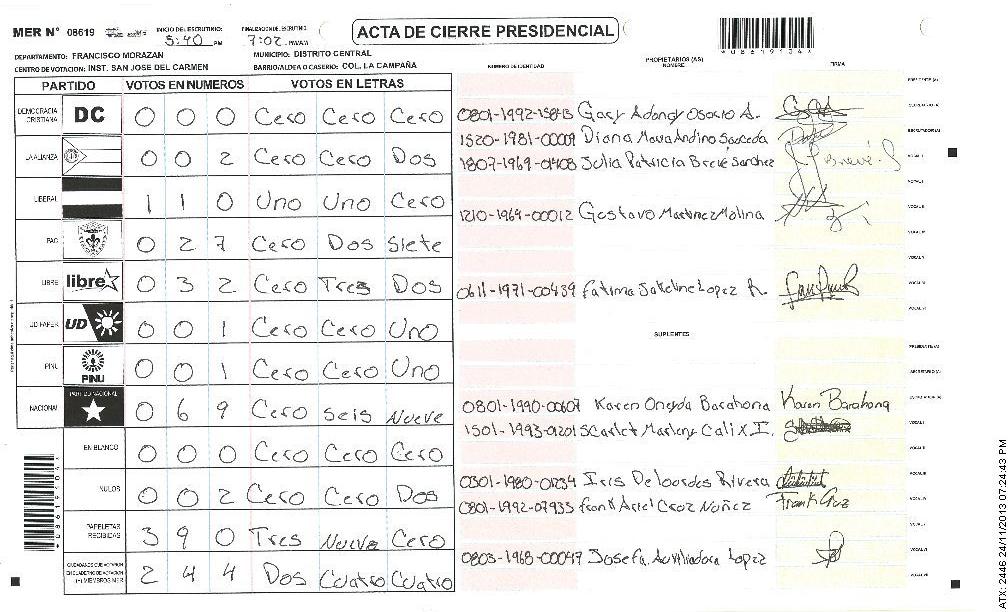 MER N° 08619
INICIO DEL ESCRUTINIO: 5:40 PM
FINALIZACION DE ESCRUTINIO: 7:02 PM/AM
ACTA DE CIERRE PRESIDENCIAL
*08619104*
DEPARTAMENTO: FRANCISCO MORAZAN
MUNICIPIO: DISTRITO CENTRAL
CENTRO DE VOTACION: INST. SAN JOSE DEL CARMEN
BARRIO/ALDEA O CASERIO: COL. LA CAMPAÑA
NUMERO DE IDENTIDAD PROPIETARIOS (AS) NOMBRE FIRMA
PARTIDO VOTOS EN NUMEROS VOTOS EN LETRAS
DEMOCRACIA CRISTIANA DC 0 0 0 Cero Cero Cero
LA ALIANZA 0 0 2 Cero Cero Dos
LIBERAL 1 1 0 Uno Uno Cero
PAC 0 2 7 Cero Dos Siete
LIBRE libre 0 3 2 Cero Tres Dos
UD FAPER UD 0 0 1 Cero Cero Uno
PINU PINU 0 0 1 Cero Cero Uno
NACIONAL PARTIDO NACIONAL 0 6 9 Cero seis Nueve
EN BLANCO 0 0 0 Cero Cero Cero
NULOS 0 0 2 Cero Cero Dos
PAPELETAS RECIBIDAS 3 9 0 Tres Nueve Cero
CIUDADANOS QUE VOTARON EN CUADERNO DE VOTACION (+) MIEMBROS MER 2 4 4 Dos Cuatro Cuatro
0801-1992-15843 Gary Adongy Osorio A.
1520-1981-00009 Diana Mava Andino Sauceda
1807-1969-01408 Julia Patricia Brevé Sanchez
1210-1969-00012 Gustavo Martinez Molina
0611-1971-00439 Fatima Jakeline Lopez R.
SUPLENTES
0801-1990-00607 Karen Oneyda Barahona Karen Barahona
1501-1993-01201 Scarlet Marleny Calix I.
0301-1980-01234 Iris De lourdes Rivera
0801-1992-07935 frank Ariel Cruz Nuñez Frank Cruz
0803-1968-00047 Josefa Auxiliadora Lopez
PRESIDENTE (A)
SECRETARIO (A)
ESCRUTADOR (A)
VOCAL I
VOCAL II
VOCAL III
VOCAL IV
VOCAL V
VOCAL VI
VOCAL VII
PRESIDENTE (A)
SECRETARIO (A)
VOCAL I
VOCAL II
VOCAL III
VOCAL IV
VOCAL V
VOCAL VI
VOCAL VII
*08619104*
ATX: 2446 24/11/2013 07:24:43 PM